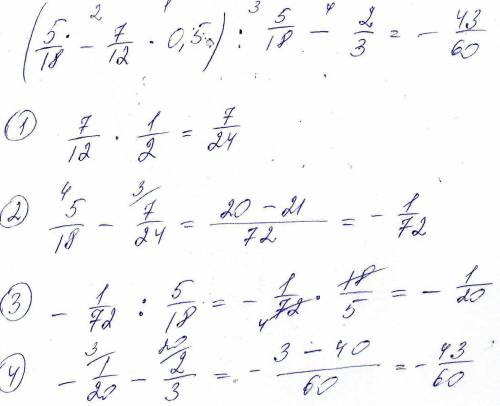 (5/18 - 7/12 · 0,5) : 5/18 - 2/3 = - 43/60
2 1 3 4
① 7/12 · 1/2 = 7/24
② 4 5/18 - 3/ 7/24 = 20-21/72 = - 1/72
③ - 1/72 : 5/18 = - 1/72 4 · 18/5 = - 1/20
④ - 3/ 1/20 - 20/ 2/3 = - 3-40/60 = - 43/60